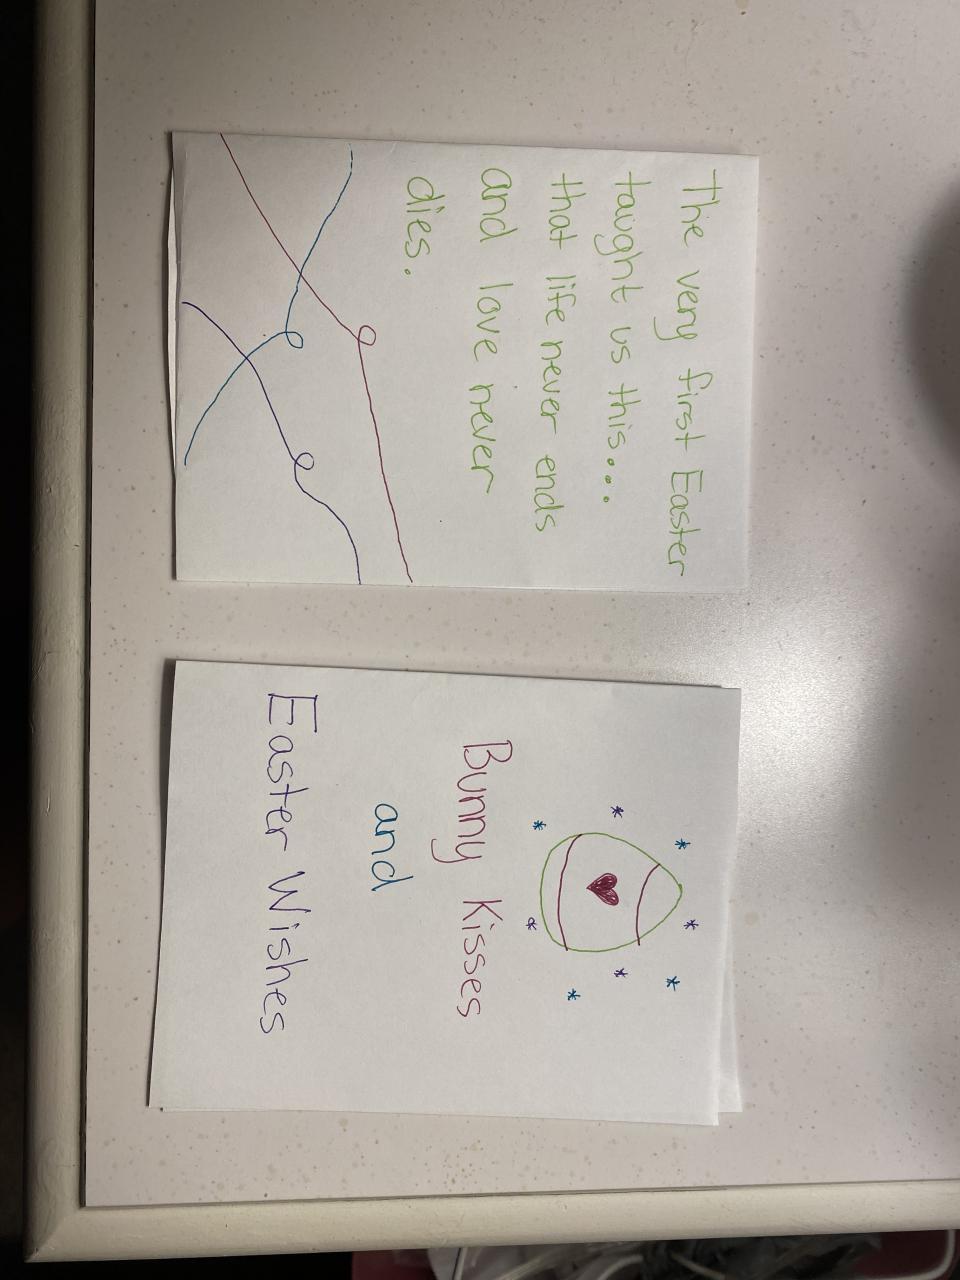 The very first Easter
taught us this...
that life never ends
and love never
dies.
Bunny Kisses
and
Easter Wishes